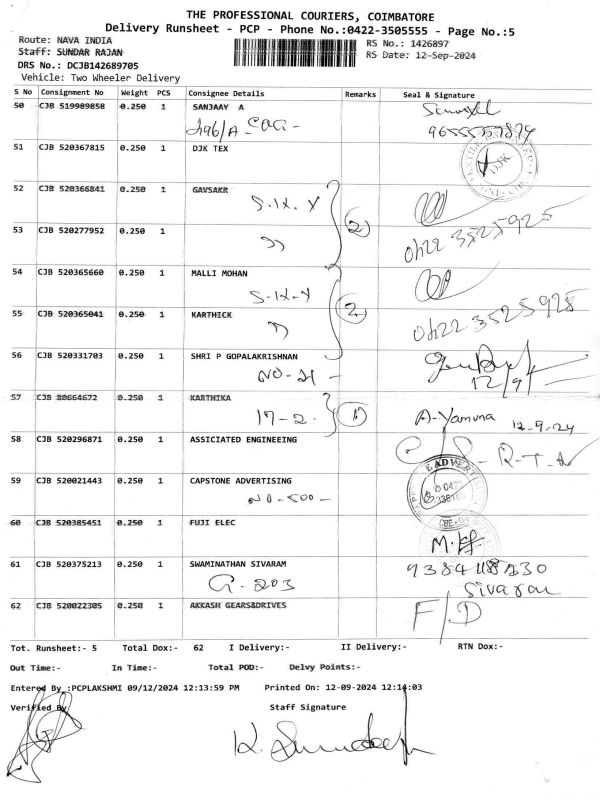 THE PROFESSIONAL COURIERS, COIMBATORE
Delivery Runsheet - PCP - Phone No.:0422-3505555 - Page No.:5
Route: NAVA INDIA
RS No.: 1426897
Staff: SUNDAR RAJAN
RS Date: 12-Sep-2024
DRS No.: DCJB142689705
Vehicle: Two Wheeler Delivery
S No Consignment No Weight PCS Consignee Details Remarks Seal & Signature
50 CJB 519989858 0.250 1 SANJAAY A
51 CJB 520367815 0.250 1 DJK TEX
DJK
52 CJB 520366841 0.250 1 GAVSAKR
S-IX-Y
2
53 CJB 520277952 0.250 1
0422 3525925
54 CJB 520365660 0.250 1 MALLI MOHAN
S-IX-Y
2
55 CJB 520365041 0.250 1 KARTHICK
0422 3525928
56 CJB 520331703 0.250 1 SHRI P GOPALAKRISHNAN
NO-21 -
12/94
57 CJB 80664672 0.250 1 KARTHIKA
17-2
1
A-Yamuna 12-9-24
58 CJB 520296871 0.250 1 ASSICIATED ENGINEEING
59 CJB 520021443 0.250 1 CAPSTONE ADVERTISING
NO-500-
60 CJB 520385451 0.250 1 FUJI ELEC
61 CJB 520375213 0.250 1 SWAMINATHAN SIVARAM
G-203
Sivaram
62 CJB 520022305 0.250 1 AKKASH GEARS&DRIVES
F/D
Tot. Runsheet:- 5 Total Dox:- 62 I Delivery:- II Delivery:- RTN Dox:-
Out Time:- In Time:- Total POD:- Delvy Points:-
Entered By :PCPLAKSHMI 09/12/2024 12:13:59 PM Printed On: 12-09-2024 12:14:03
Verified By
Staff Signature